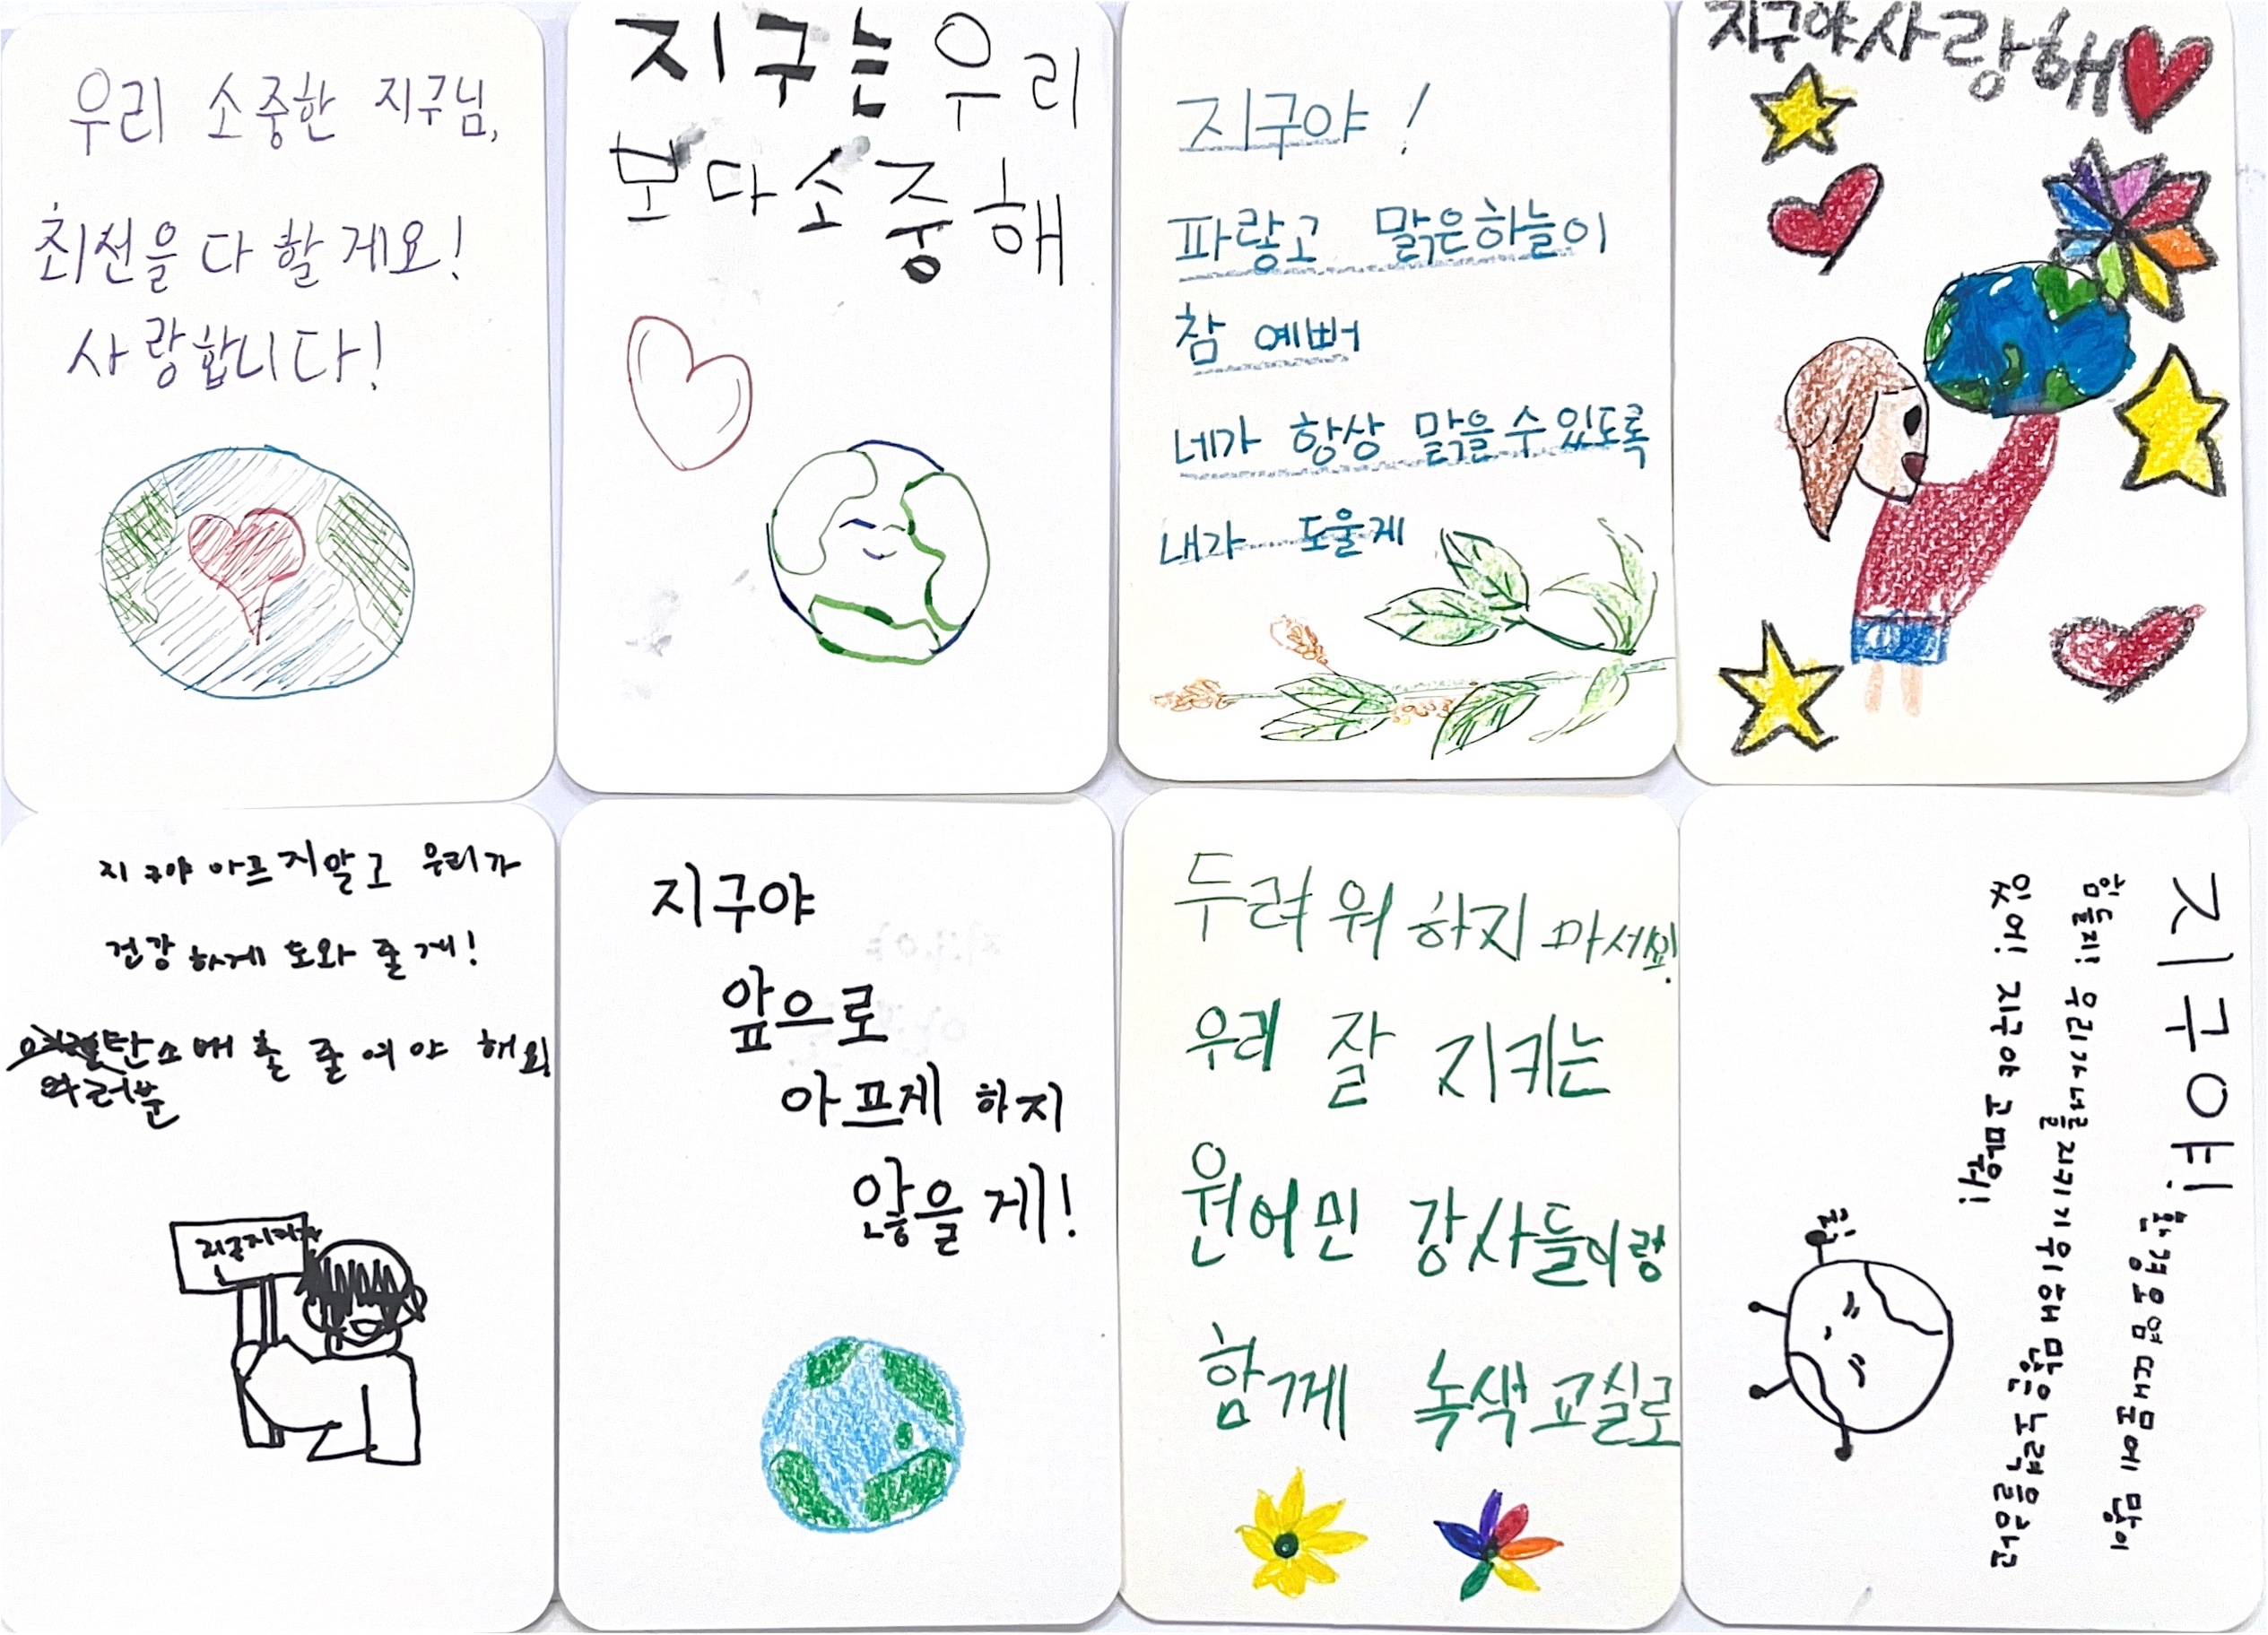 우리 소중한 지구님,
최선을 다 할게요!
사랑합니다!
지구는 우리
보다 소중해
지구야!
파랗고 맑은하늘이
참 예뻐
네가 항상 맑을 수 있도록
내가 도울게
지구야 사랑해
지구야 아프지말고 우리가
건강하게 도와 줄게!
탄소배출 줄여야 해요
여러분
지구야
앞으로
아프게 하지
않을게!
두려워 하지 마세요!
우리 잘 지키는
원어민 강사들이랑
함께 녹색교실로
지구야! 환경오염 때문에 많이
힘들지! 우리가 너를 지키기 위해 많은 노력을 하고
있어! 지구야 고마워!